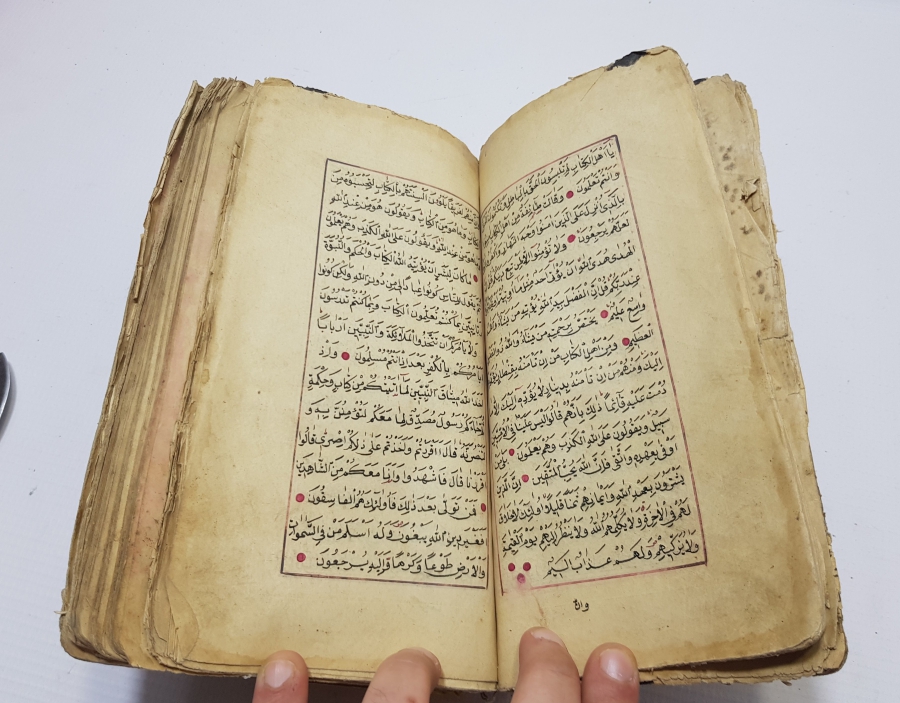 يا اهل الكتاب لم تلبسون الحق بالباطل
وانتم تعلمون وقالت طائفة من
بالذي انزل على الذين امنوا وجه النهار
لعلهم يرجعون ولا تؤمنوا الا لمن تبع
الهدى هدى الله ان يؤتى احد مثل ما
عند ربكم قل ان الفضل بيد الله يؤتيه من يشاء
واسع عليم يختص برحمته من يشاء والله ذو الفضل
العظيم ومن اهل الكتاب من ان تأمنه بقنطار يؤده
اليك ومنهم من ان تأمنه بدينار لا يؤده اليك الا
دمت عليه قائما ذلك بانهم قالوا ليس علينا في الاميين
سبيل ويقولون على الله الكذب وهم يعلمون بلى من
اوفى بعهده واتقى فان الله يحب المتقين ان الذين
يشترون بعهد الله وايمانهم ثمنا قليلا اولئك لا خلاق
لهم في الاخرة ولا يكلمهم الله ولا ينظر اليهم يوم القيمة
ولا يزكيهم ولهم عذاب اليم
وان
لفريقا يلون السنتهم بالكتاب لتحسبوه من
الكتاب وما هو من الكتاب ويقولون هو من عند الله
وما هو من عند الله ويقولون على الله الكذب وهم يعلمون
ما كان لبشر ان يؤتيه الله الكتاب والحكم والنبوة
ثم يقول للناس كونوا عبادا لي من دون الله ولكن كونوا
ربانيين بما كنتم تعلمون الكتاب وبما كنتم تدرسون
ولا يأمركم ان تتخذوا الملائكة والنبيين اربابا
ايأمركم بالكفر بعد اذ انتم مسلمون واذ
اخذ الله ميثاق النبيين لما اتيتكم من كتاب وحكمة
ثم جاءكم رسول مصدق لما معكم لتؤمنن به و
لتنصرنه قال اقررتم واخذتم على ذلكم اصري قالوا
اقررنا قال فاشهدوا وانا معكم من الشاهدين
فمن تولى بعد ذلك فاولئك هم الفاسقون
افغير دين الله يبغون وله اسلم من في السموات
والارض طوعا وكرها واليه يرجعون